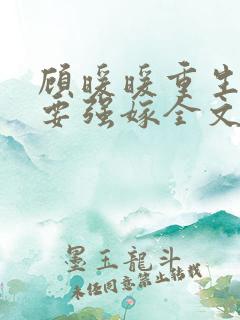 顾暖暖重生
要强嫁全文
墨玉龍斗
未经同意禁止转载